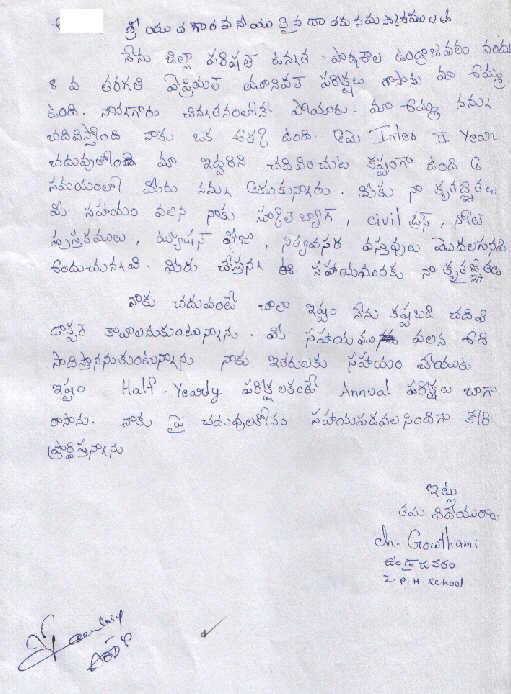 శ్రీయుత గౌరవనీయులైన దాతకు నమస్కారములు
నేను జిల్లా పరిషత్ ఉన్నత పాఠశాల ఉండ్రాజవరం నందు
8 వ తరగతి ఏప్రియల్ యూనివల్ పరీక్షలు రాసాను మా అమ్మ
ఉంది. నాన్నగారు చిన్నతనంలోనే పోయారు. మా అమ్మ నన్ను
చదివిస్తోంది నాకు ఒక అక్క ఉంది. ఆమె Inter II Year
చదువుతోంది మా ఇద్దరిని చదివించుట కష్టంగా ఉంది ఈ
సమయంలో మీరు నన్ను ఆదుకున్నారు. మీకు నా కృతజ్ఞతలు
మీ సహాయం వలన నాకు స్కూల్ బ్యాగ్, civil డ్రస్, నోట్
పుస్తకములు, ట్యూషన్ ఫీజు, నిత్యవసర వస్తువులు మొదలగునవి
అందుచున్నవి. మీరు చేస్తున్న ఈ సహాయమునకు నా కృతజ్ఞతలు
నాకు చదువంటే చాలా ఇష్టం నేను కష్టబడి చదివి
డాక్టర్ కావాలనుకుంటున్నాను. మీ సహాయము వలన అది
సాధిస్తాననుకుంటున్నాను నాకు ఇతరులకు సహాయం చేయుట
ఇష్టం Half-Yearly పరీక్షలకంటే Annual పరీక్షలు బాగా
రాసాను. నాకు పై చదువులకోసం సహాయపడవలసిందిగా కోరి
ప్రార్థిస్తున్నాను
ఇట్లు
తమ విధేయురాలు
Ch. Gowthami
ఉండ్రాజవరం
Z P H School